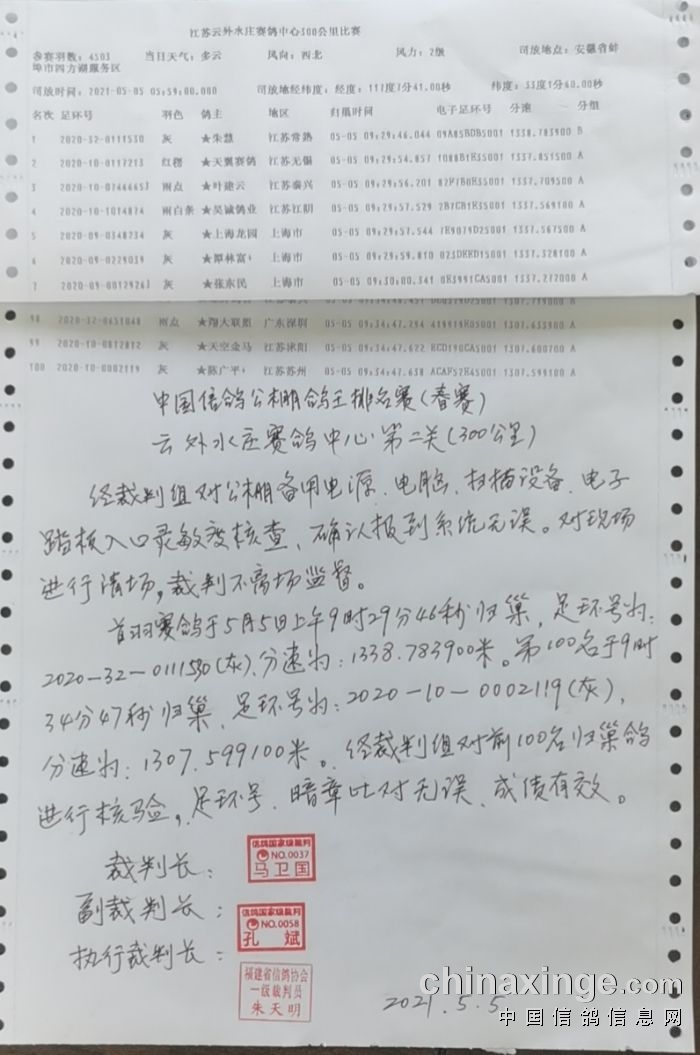 江苏云外水庄赛鸽中心300公里比赛
参赛羽数：4503 当日天气：多云 风向：西北 风力：2级 司放地点：安徽省蚌
埠市四方湖服务区
司放时间：2021-05-05 05:59:00.000 司放地经纬度：经度：117度7分41.00秒 纬度：33度1分60.00秒
名次 足环号 羽色 鸽主 地区 归巢时间 电子足环号 分速 分组
1 2020-32-0111530 灰 ★朱慧 江苏常熟 05-05 09:29:46.044 09A85BDB5001 1338.783900 B
2 2020-10-0117213 红楞 ★天翼赛鸽 江苏无锡 05-05 09:29:54.857 1337.851500 A
3 2020-10-0746665J 雨点 ★叶建云 江苏泰兴 05-05 09:29:56.201 1337.709500 A
4 2020-10-1014874 雨白条 ★吴诚鸽业 江苏江阴 05-05 09:29:57.529 1337.569100 A
5 2020-09-0348234 灰 ★上海龙园 上海市 05-05 09:29:57.544 7E9079D25001 1337.567500 A
6 2020-09-0229039 灰 上海市 05-05 09:29:59.810 023DEED15001 1337.328100 A
7 2020-09-0012926J 灰 ★张东民 上海市 05-05 09:30:00.341 0E3991CA5001 1337.272000 A
98 2020-32-0651048 雨点 ★翔大联盟 广东深圳 05-05 09:34:47.294 1307.633900 A
99 2020-10-0812812 灰 ★天空金马 江苏沭阳 05-05 09:34:47.622 1307.600700 A
100 2020-10-0002119 灰 ★陈广平+ 江苏苏州 05-05 09:34:47.638 1307.599100 A
中国信鸽公棚鸽王排名赛（春赛）
云外水庄赛鸽中心第二关（300公里）
经裁判组对公棚备用电源、电脑、扫描设备、电子
踏板入口灵敏度核查，确认报到系统无误。对现场
进行清场，裁判不离场监督。
首羽赛鸽于5月5日上午9时29分46秒归巢，足环号为：
2020-32-0111530（灰），分速为：1338.783900米。第100名于9时
34分47秒归巢，足环号为：2020-10-0002119（灰），
分速为：1307.599100米。经裁判组对前100名归巢鸽
进行核验，足环号、暗章比对无误，成绩有效。
裁判长：
信鸽国家级裁判
NO.0037
马卫国
副裁判长：
信鸽国家级裁判
NO.0058
孔斌
执行裁判长：
福建省信鸽协会
一级裁判员
朱天明
2021.5.5
chinaxinge.com
中国信鸽信息网